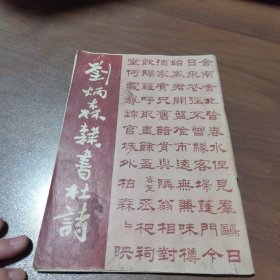 劉炳森隸書杜詩
舍南舍北皆春水但見羣鷗日
日來花徑不曾緣客掃蓬門今
始為君開盤飧市遠無兼味樽
酒家貧只舊醅肯與鄰翁相對
飲隔籬呼取盡餘杯客至丞相祠
堂何處尋錦官城外柏森森映